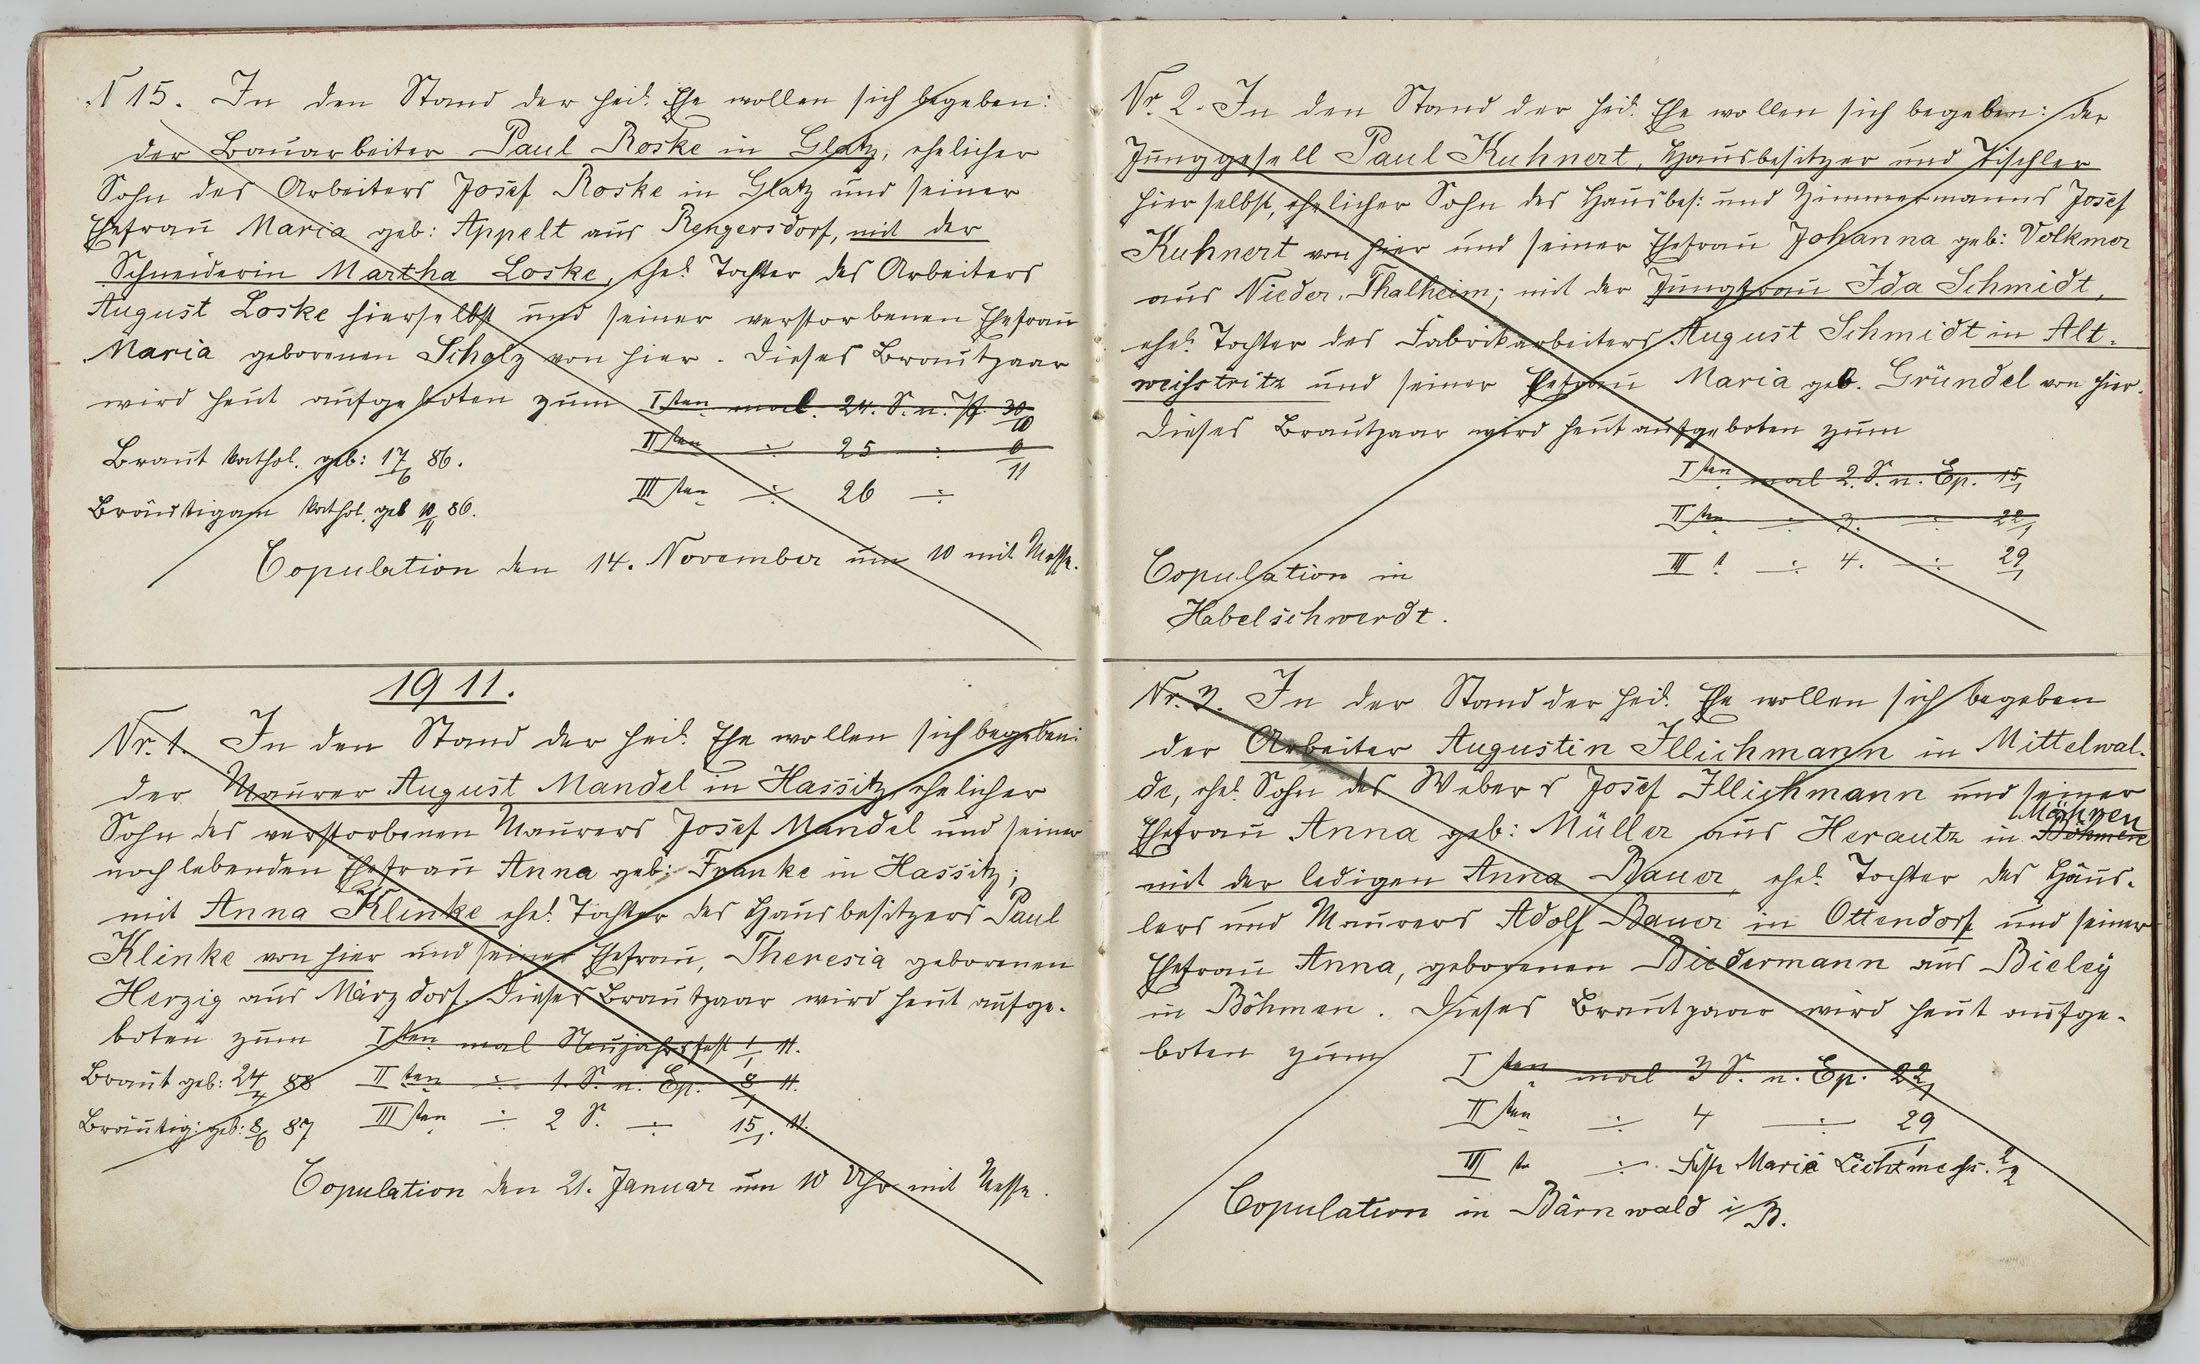 N 15. In den Stand der heil. Ehe wollen sich begeben:
der Bauarbeiter Paul Roske in Glatz, ehelicher
Sohn des Arbeiters Josef Roske in Glatz und seiner
Ehefrau Maria geb: Appelt aus Rengersdorf, mit der
Schneiderin Martha Loske, ehel. Tochter des Arbeiters
August Loske hierselbst und seiner verstorbenen Ehefrau
Maria geborenen Scholz von hier. Dieses Brautpaar
wird heut aufgeboten zum Iten mal. 24. S. n. Pf. 30/10
IIten ÷ 25 ÷ 6/11
IIIten ÷ 26 ÷
Braut kathol. geb: 17/6 86.
Bräutigam kathol. geb 10/11 86.
Copulation den 14. November um 10 mit Messe.
1911.
Nr. 1. In den Stand der heil. Ehe wollen sich begeben:
der Maurer August Mandel in Hassitz, ehelicher
Sohn des verstorbenen Maurers Josef Mandel und seiner
noch lebenden Ehefrau Anna geb: Franke in Hassitz;
mit Anna Klinke ehel. Tochter des Hausbesitzers Paul
Klinke von hier und seiner Ehefrau, Theresia geborenen
Herzig aus Märzdorf. Dieses Brautpaar wird heut aufge-
boten zum Iten mal Neujahrsfest 1/1 11.
Braut geb: 24/4 88 IIten ÷ 1. S. n. Ep. 8/1 11.
Bräutig: geb: 8/6 87 IIIten ÷ 2 S. ÷ 15/1. 11.
Copulation den 21. Januar um 10 Uhr mit Messe.
Nr. 2. In den Stand der heil. Ehe wollen sich begeben: der
Junggesell Paul Kuhnert, Hausbesitzer und Tischler
hierselbst, ehelicher Sohn des Hausbes: und Zimmermanns Josef
Kuhnert von hier und seiner Ehefrau Johanna geb: Volkmer
aus Nieder-Thalheim; mit der Jungfrau Ida Schmidt,
ehel. Tochter des Fabrikarbeiters August Schmidt in Alt-
weistritz und seiner Ehefrau Maria geb. Gründel von hier.
Dieses Brautpaar wird heut aufgeboten zum
Iten mal 2. S. n. Ep. 15/1
IIten ÷ 3. ÷ 22/1
III t ÷ 4. ÷ 29/1
Copulation in
Habelschwerdt.
Nr. 3. In der Stand der heil. Ehe wollen sich begeben
der Arbeiter Augustin Illichmann in Mittelwal-
de, ehel. Sohn des Webers Josef Illichmann und seiner
Ehefrau Anna geb: Müller aus Herautz in Böhmen Mähren
mit der ledigen Anna Bauer, ehel. Tochter des Häus-
lers und Maurers Adolf Bauer in Ottendorf und seiner
Ehefrau Anna, geborenen Biedermann aus Bieley
in Böhmen. Dieses Brautpaar wird heut aufge-
boten zum
Iten mal 3 S. n. Ep. 22/1
IIten ÷ 4 ÷ 29/1
III te ÷ Feste Mariä Lichtmeß. 2/2
Copulation in Bärnwald i/B.